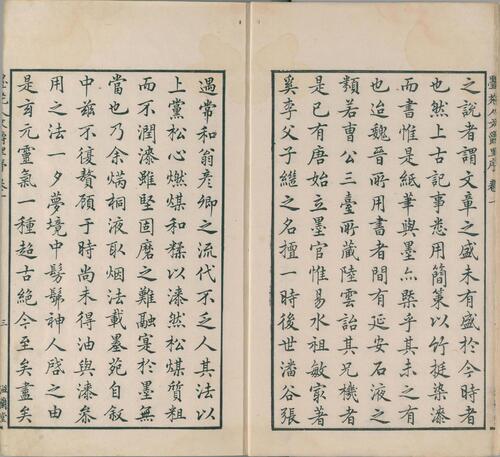 之說者謂文章之盛未有盛於今時者
也然上古記事悉用簡策以竹挺染漆
而書惟是紙筆與墨亦槩乎其未之有
也迨魏晉所用書者間有延安石液之
類若曹公三臺所藏陸雲詒其兄機者
是已有唐始立墨官惟易水祖敏家著
奚李父子繼之名擅一時後世潘谷張
遇常和翁彥卿之流代不乏人其法以
上黨松心燃煤和糅以漆然松煤質粗
而不潤漆雖堅固磨之難融寔於墨無
當也乃余焫桐液取烟法載墨苑自敘
中茲不復贅顧于時尚未得油與漆叅
用之法一夕夢境中髣髴神人啓之由
是玄元靈氣一種超古絕今至矣盡矣
三
滋蘭堂